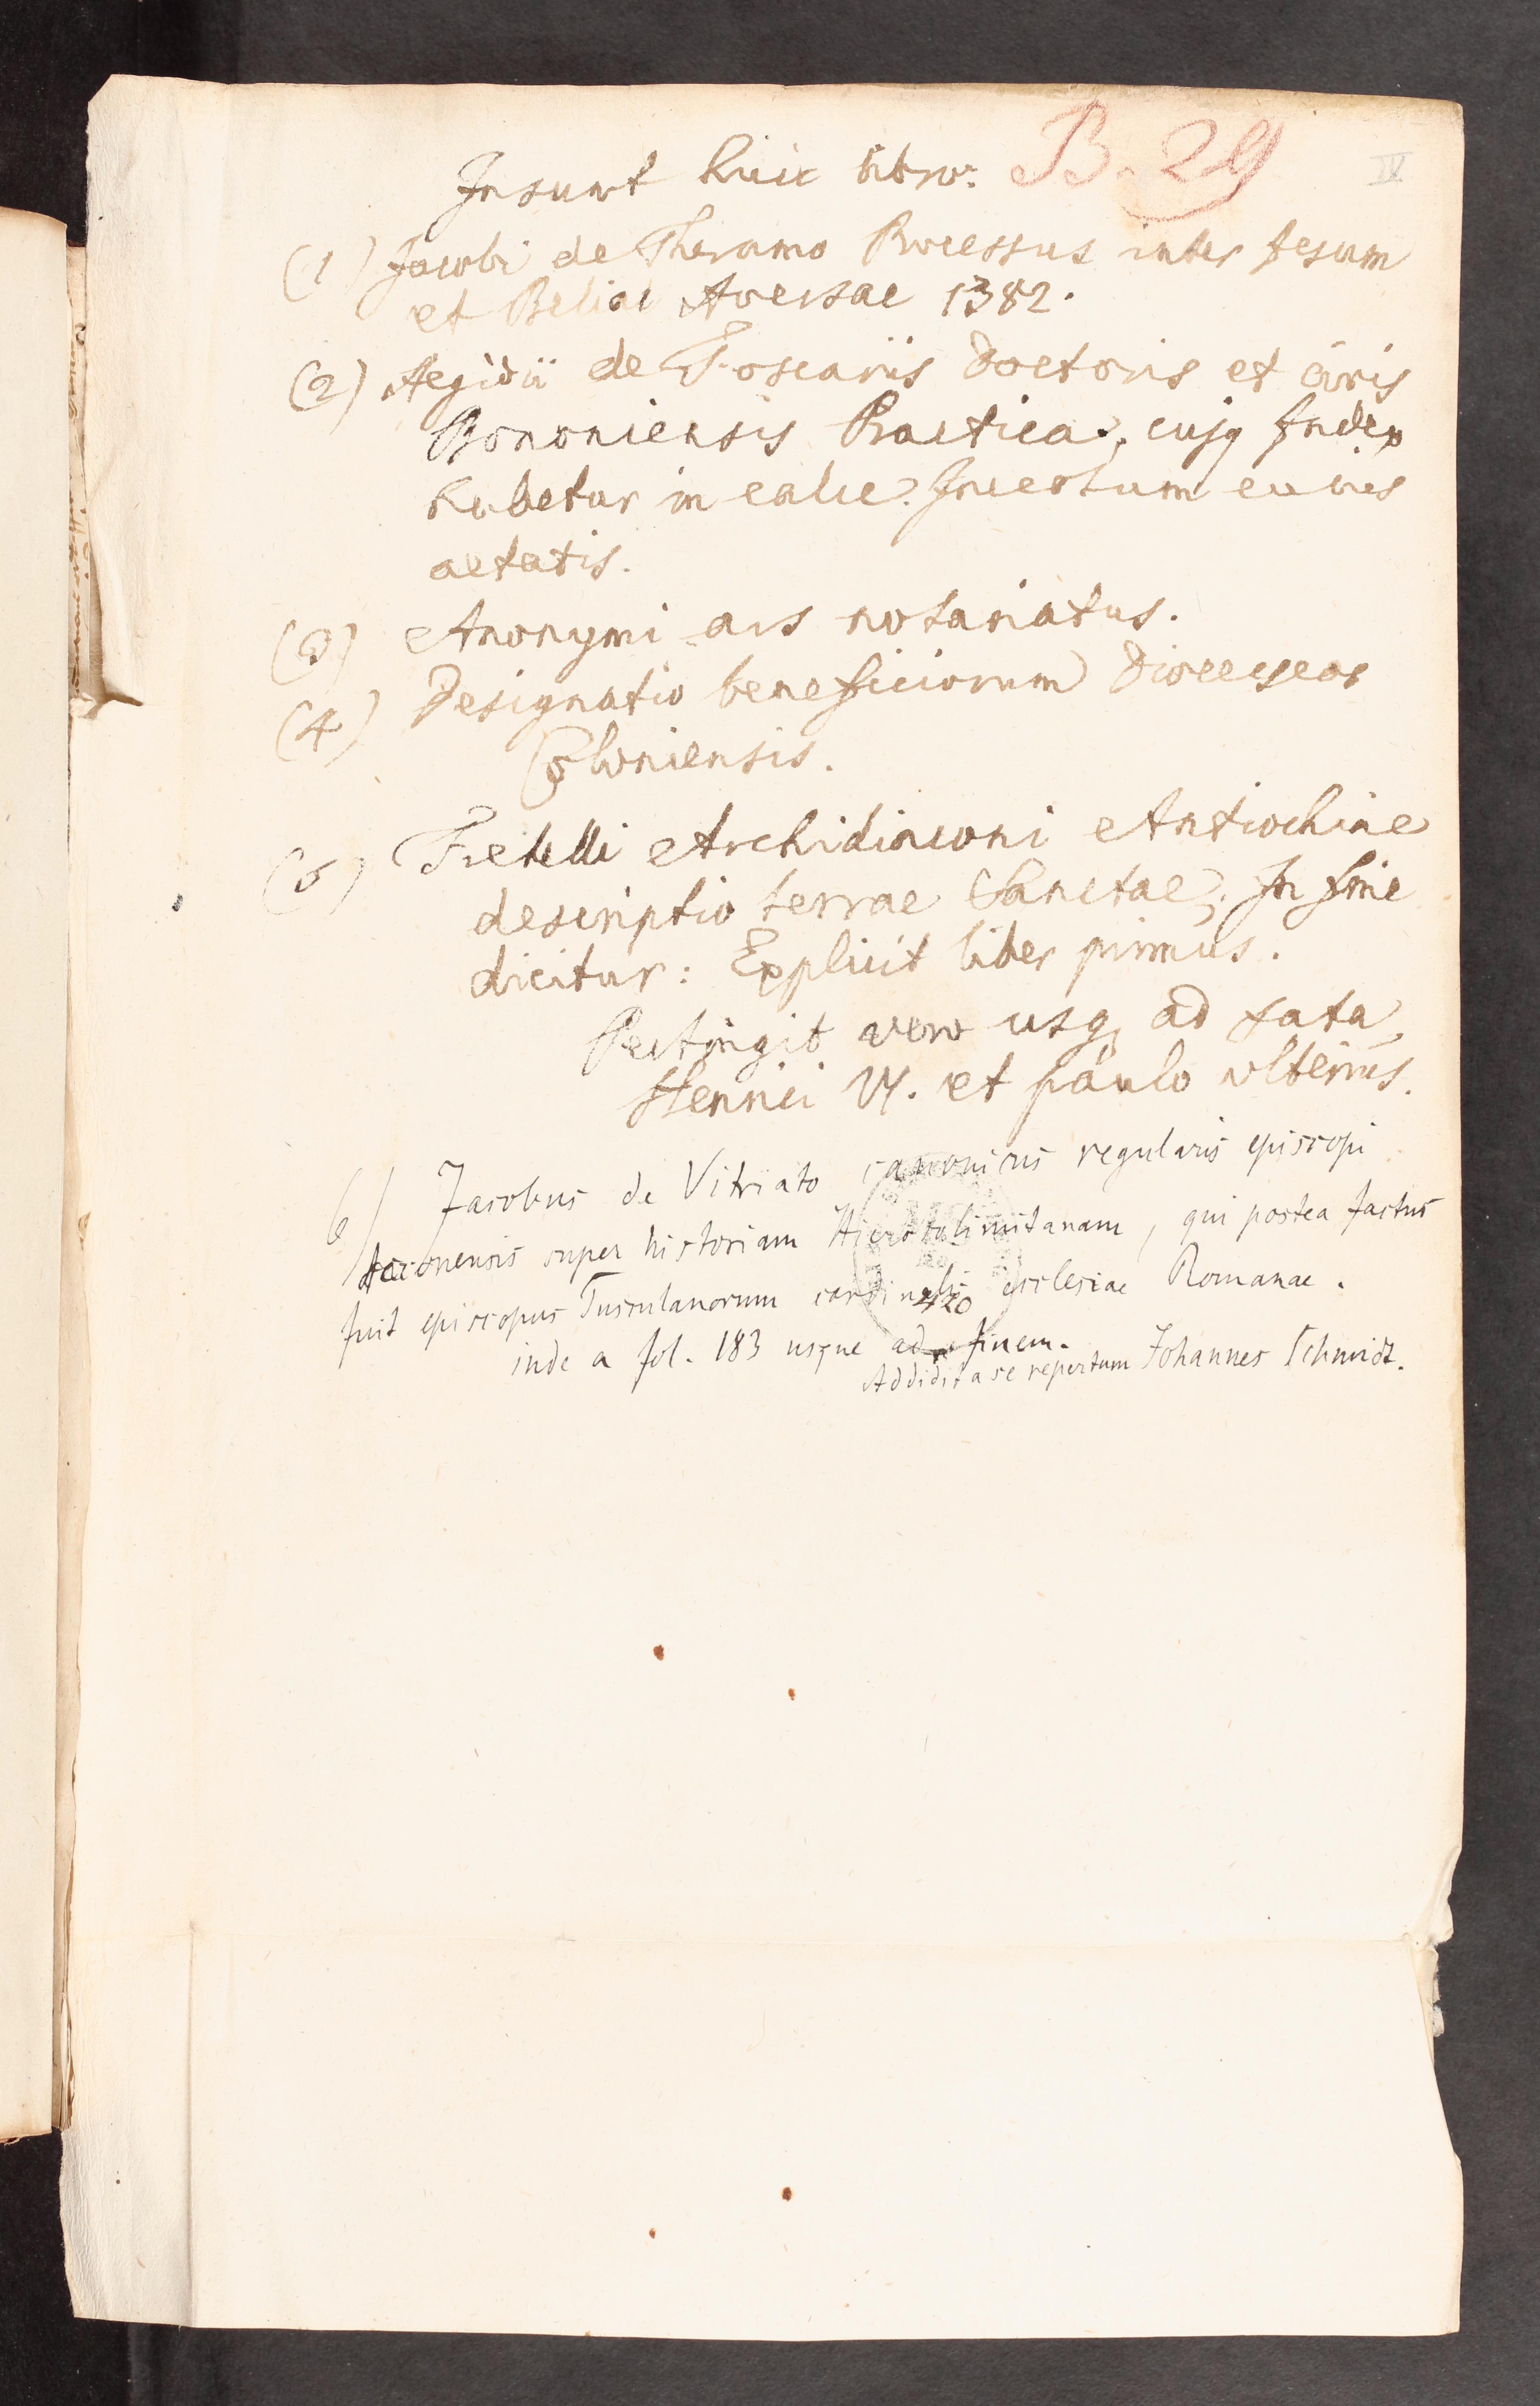 B. 29
IV
Insunt huic libro:
(1) Jacobi de Theramo Processus inter Jesum
et Belial Aversae 1382.
(2) Aegidii de Foscariis Doctoris et civis
Bononiensis Practica, cujq Index
habetur in calce. Incertum cuius
aetatis.
(3) Anonymi ars notariatus.
(4) Designatio beneficiorum Dioeceseos
Coloniensis.
(5) Fretelli Archidiaconi Antiochiae
descriptio terrae Sanctae. In fine
dicitur: Explicit liber primus.
Pertingit vero usq ad fata
Henrici VI. et paulo ulterius.
6) Jacobus de Vitriato canonicus regularis episcopi
Acconensis super historiam Hierosolimitanam, qui postea factus
fuit episcopus Tusculanorum cardinalis ecclesiae Romanae.
420
inde a fol. 183 usque ad finem.
Addidit a se repertum Johannes Schmidt.